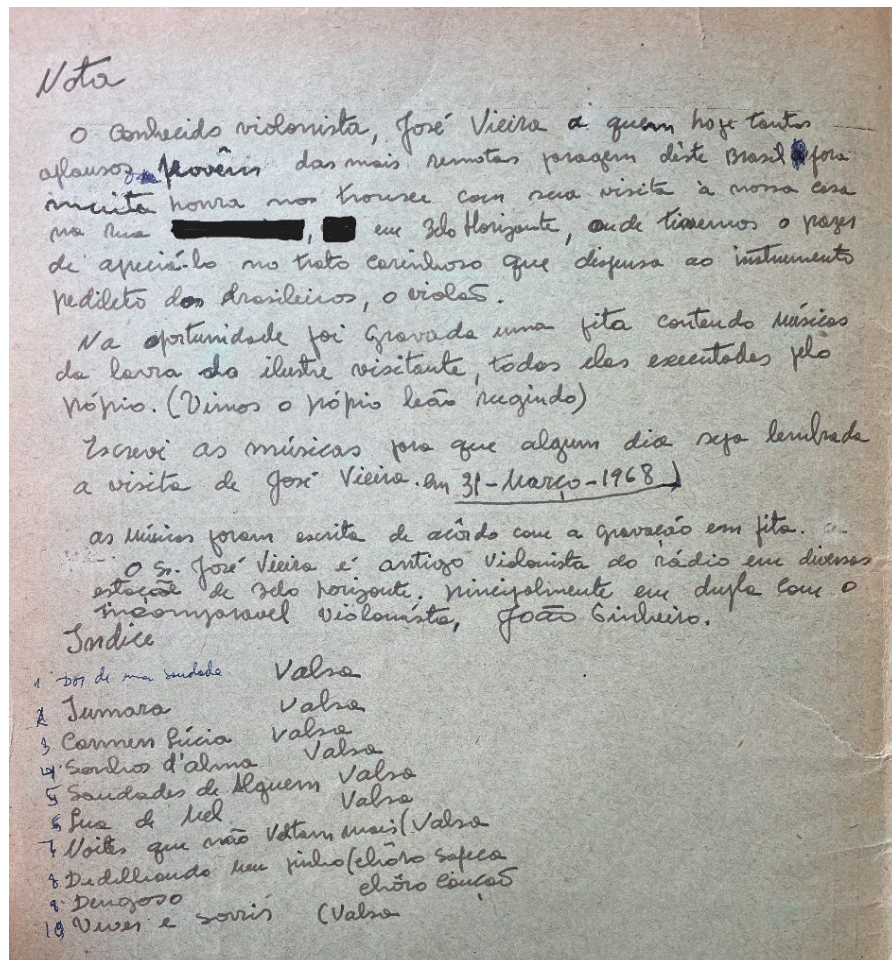 Nota
O conhecido violonista, José Vieira a quem hoje tantos
aplausos provêm das mais remotas paragem dêste Brasil fora
muita honra nos trouxer com sua visita à nossa casa
na rua , em Belo Horizonte, onde tivemos o prazer
de apreciá-lo no trato carinhoso que dispensa ao instrumento
predileto dos brasileiros, o violão.
Na oportunidade foi gravada uma fita contendo músicas
da lavra do ilustre visitante, todas elas executadas pelo
própio. (Vimos o própio leão rugindo)
Escrevi as músicas para que algum dia seja lembrada
a visita de José Vieira. em 31-Março-1968)
as músicas foram escrita de acôrdo com a gravação em fita.
O Sr. José Vieira é antigo violonista do rádio em diversas
estação de Belo horizonte. principalmente em dupla com o
incomparavel violonista, João
Indice
1 Dor de uma saudade Valsa
2 Jumara Valsa
3 Carmen Lúcia Valsa
4 Sonhos d'alma Valsa
5 Saudades de Alguem Valsa
6 Lua de Mel Valsa
7 Noites que não Voltam mais (Valsa
8 Dedilhando meu pinho (chôro Sapeca
9 Dengoso chôro canção
10 Vives e sorris (Valsa